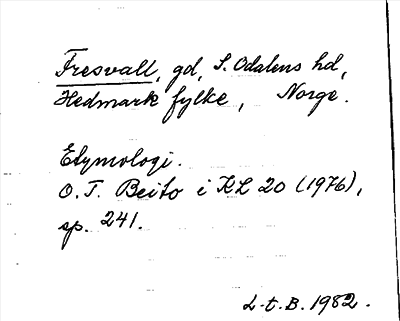 Fresvall, gd, S. Odalens hd,
Hedmark fylke, Norge.
Etymologi.
O. T. Beito i KL 20 (1976),
sp. 241.
L-t. B. 1982.